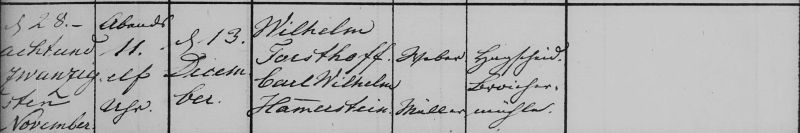 d 28.-
achtund
zwanzig
sten
November.
Abends
11.
elf
Uhr.
d 13.
Decem-
ber.
Wilhelm
Forsthoff.
Carl Wilhelm
Hamerstein.
Weber
Müller
Hugscheid.
Broicher-
mühle.